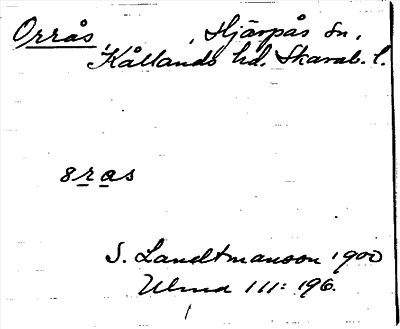 Orrås, Hjärpås sn,
Kållands hd. Skarab. l.
8ras
S. Landtmanson 1900
Ulma III: 196.